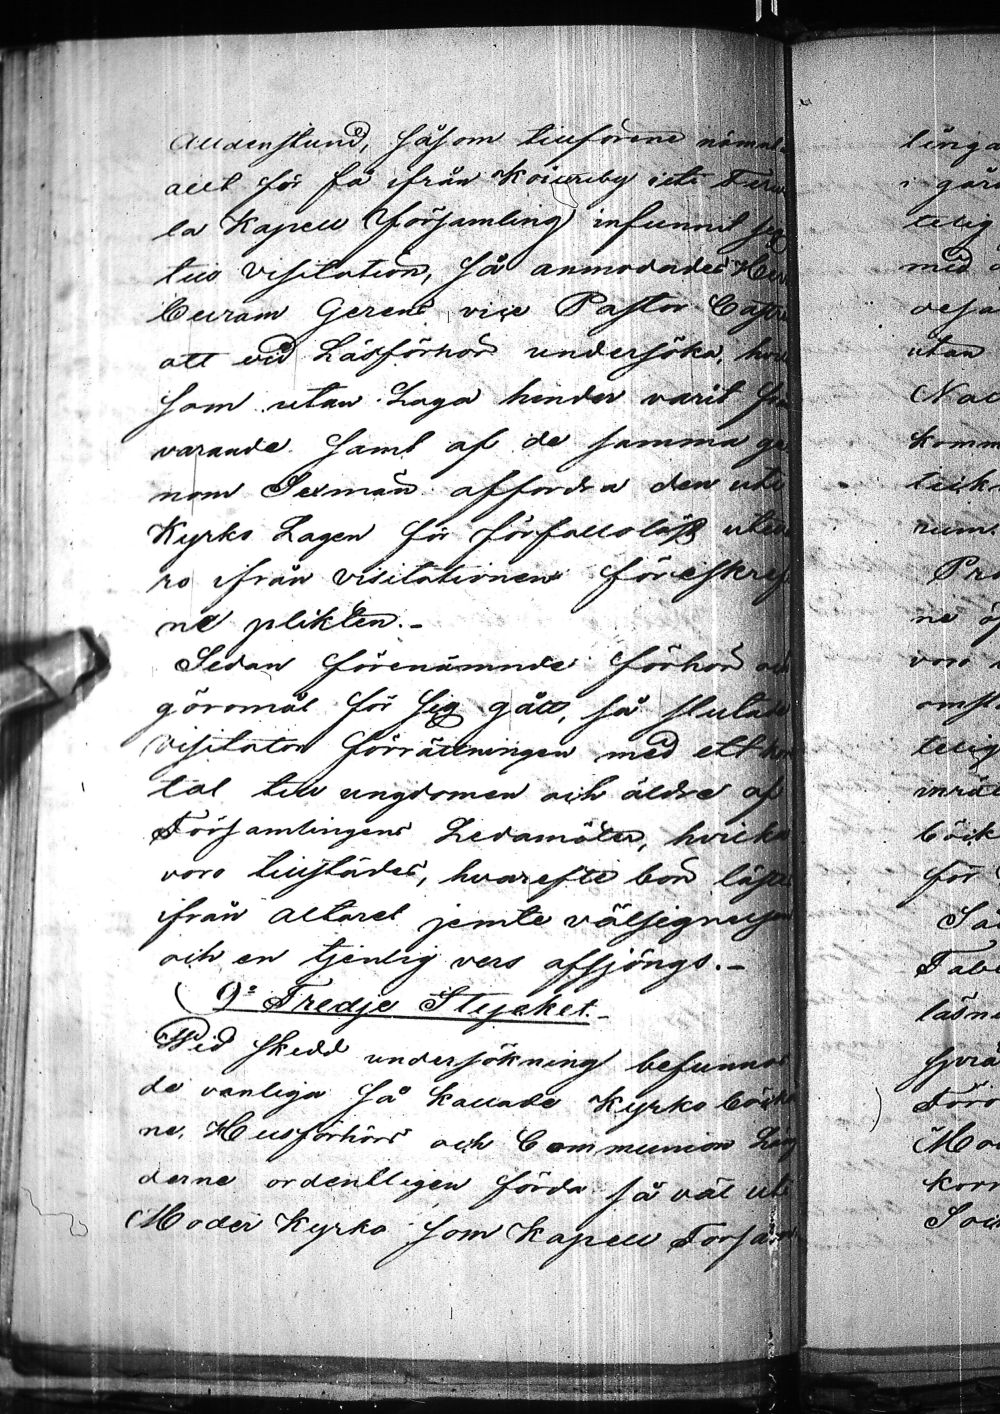 Alldenstund, såsom tillförene nämnt
allt för få ifrån Koiviby uti
la Kapell församling infunnit sig
till Visitation, så anmodades Herr
Curam Gerens vice Pastor
att vid Läsförhör undersöka,
som utan Laga hinder varit
varande samt af de samma ge
nom Sexmän affordra den uti
Kyrko Lagen för förfallolöst utev
ro ifrån visitationen föreskref
ne plikten.-
Sedan förenämnde förhör och
göromål för sig gått, så slutade
Visitator förrättningen med ett
tal till ungdomen och äldre af
Församlingens Ledamöter, hvilka
voro tillstädes, hvarefte bön läste
ifrån Altaret jemte välsignelsen
och en tjenlig vers afsjöngs.-
9º Tredje Stycket.-
Wid skedd undersökning befunnos
de vanliga så kallade Kyrko böcker
ne, Husförhörs och Communion Läng
derne ordentligen förda så väl uti
Moder Kyrko som Kapell Försam
länga
i går
telig
med
utan
komm
ne
voro
telig
inrät
för